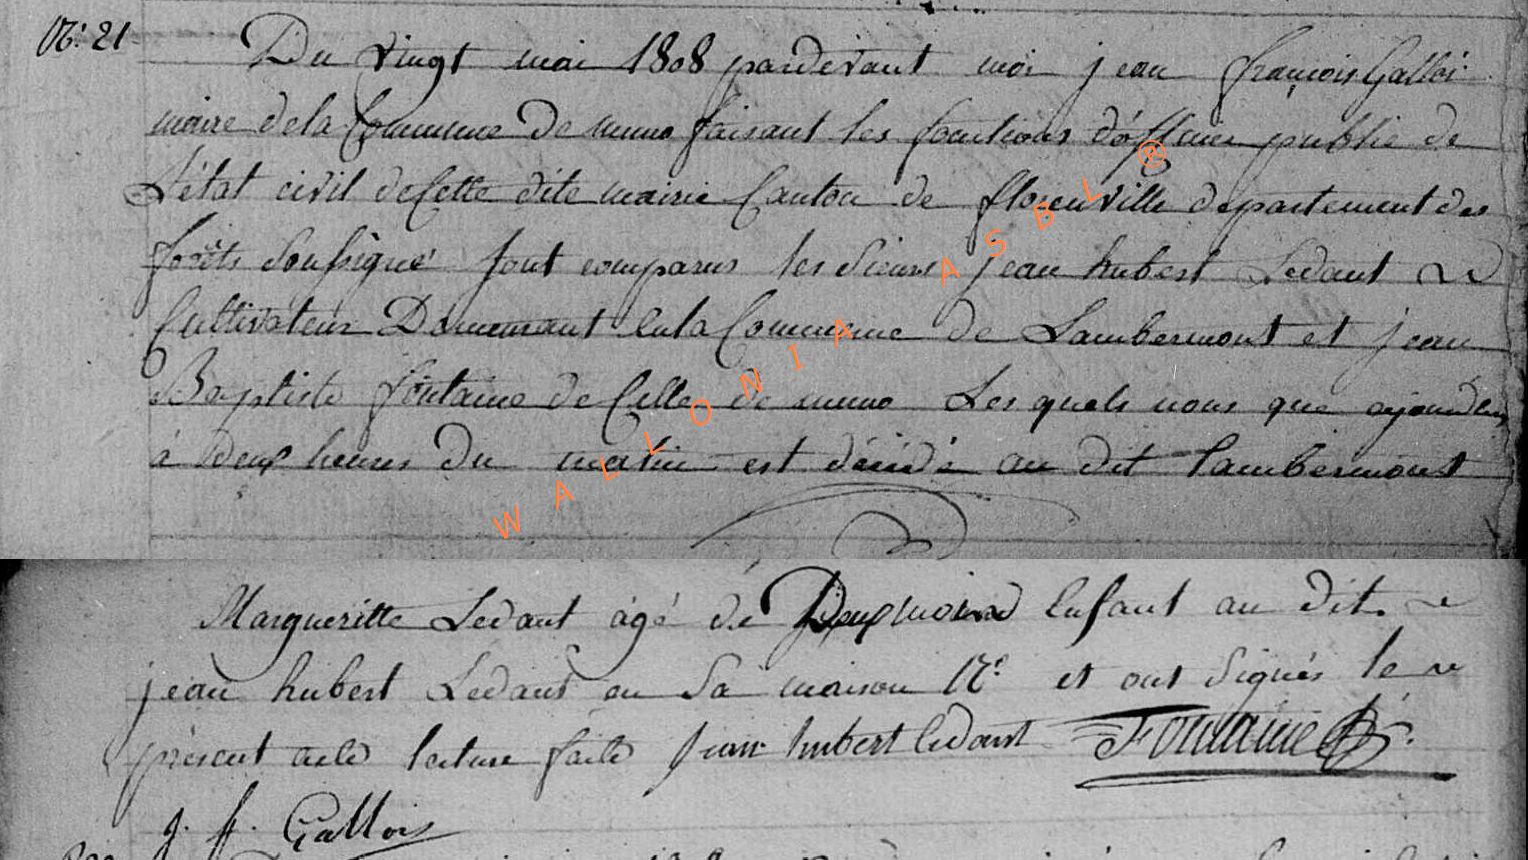 N.° 21
Du vingt mai 1808 pardevant moi jean françois Galloi
maire de la Commune de muno faisant les fonctions d'officier public de
L'état civil de Cette dite mairie Canton de florenville departement des
forêts Soussigné sont comparus les Sieurs jean hubert Ledant
Cultivateur Demeurant en la Commune de Lambermont et jean
Baptiste fontaine de Celle de muno Les quels nous que
à deux heures du matin est décédé au dit Lambermont
Margueritte Ledant âgé de Deux mois Enfant au dit
jean hubert Ledant en Sa maison N.° et ont Signés le
présent acte lecture faite jean hubert ledant Fontaine
j. f. Gallois
WALLONIA ASBL ®